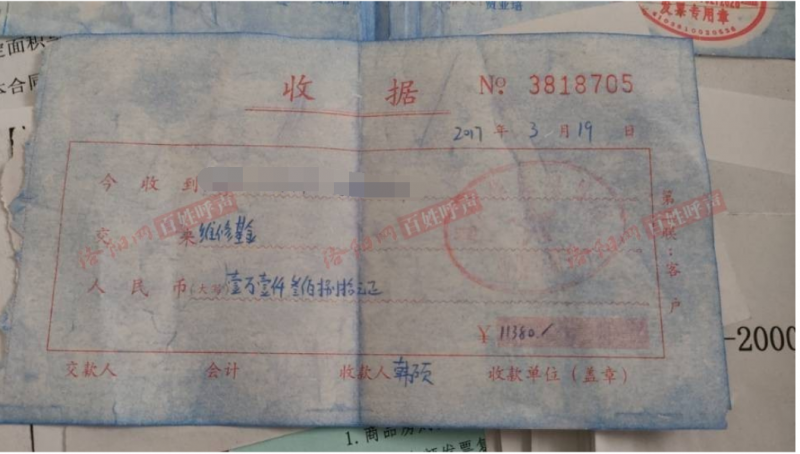 定面积
本合同
发票专用章
收 据 № 3818705
2017 年 3 月 19 日
今收到
交 来 维修基金
人民币(大写) 壹万壹仟叁佰捌拾元正
¥ 11380/
第 联:客户
交款人 会计 收款人 韩硕 收款单位(盖章)
洛阳网 百姓呼声
洛阳网 百姓呼声
-2000
1.商品房